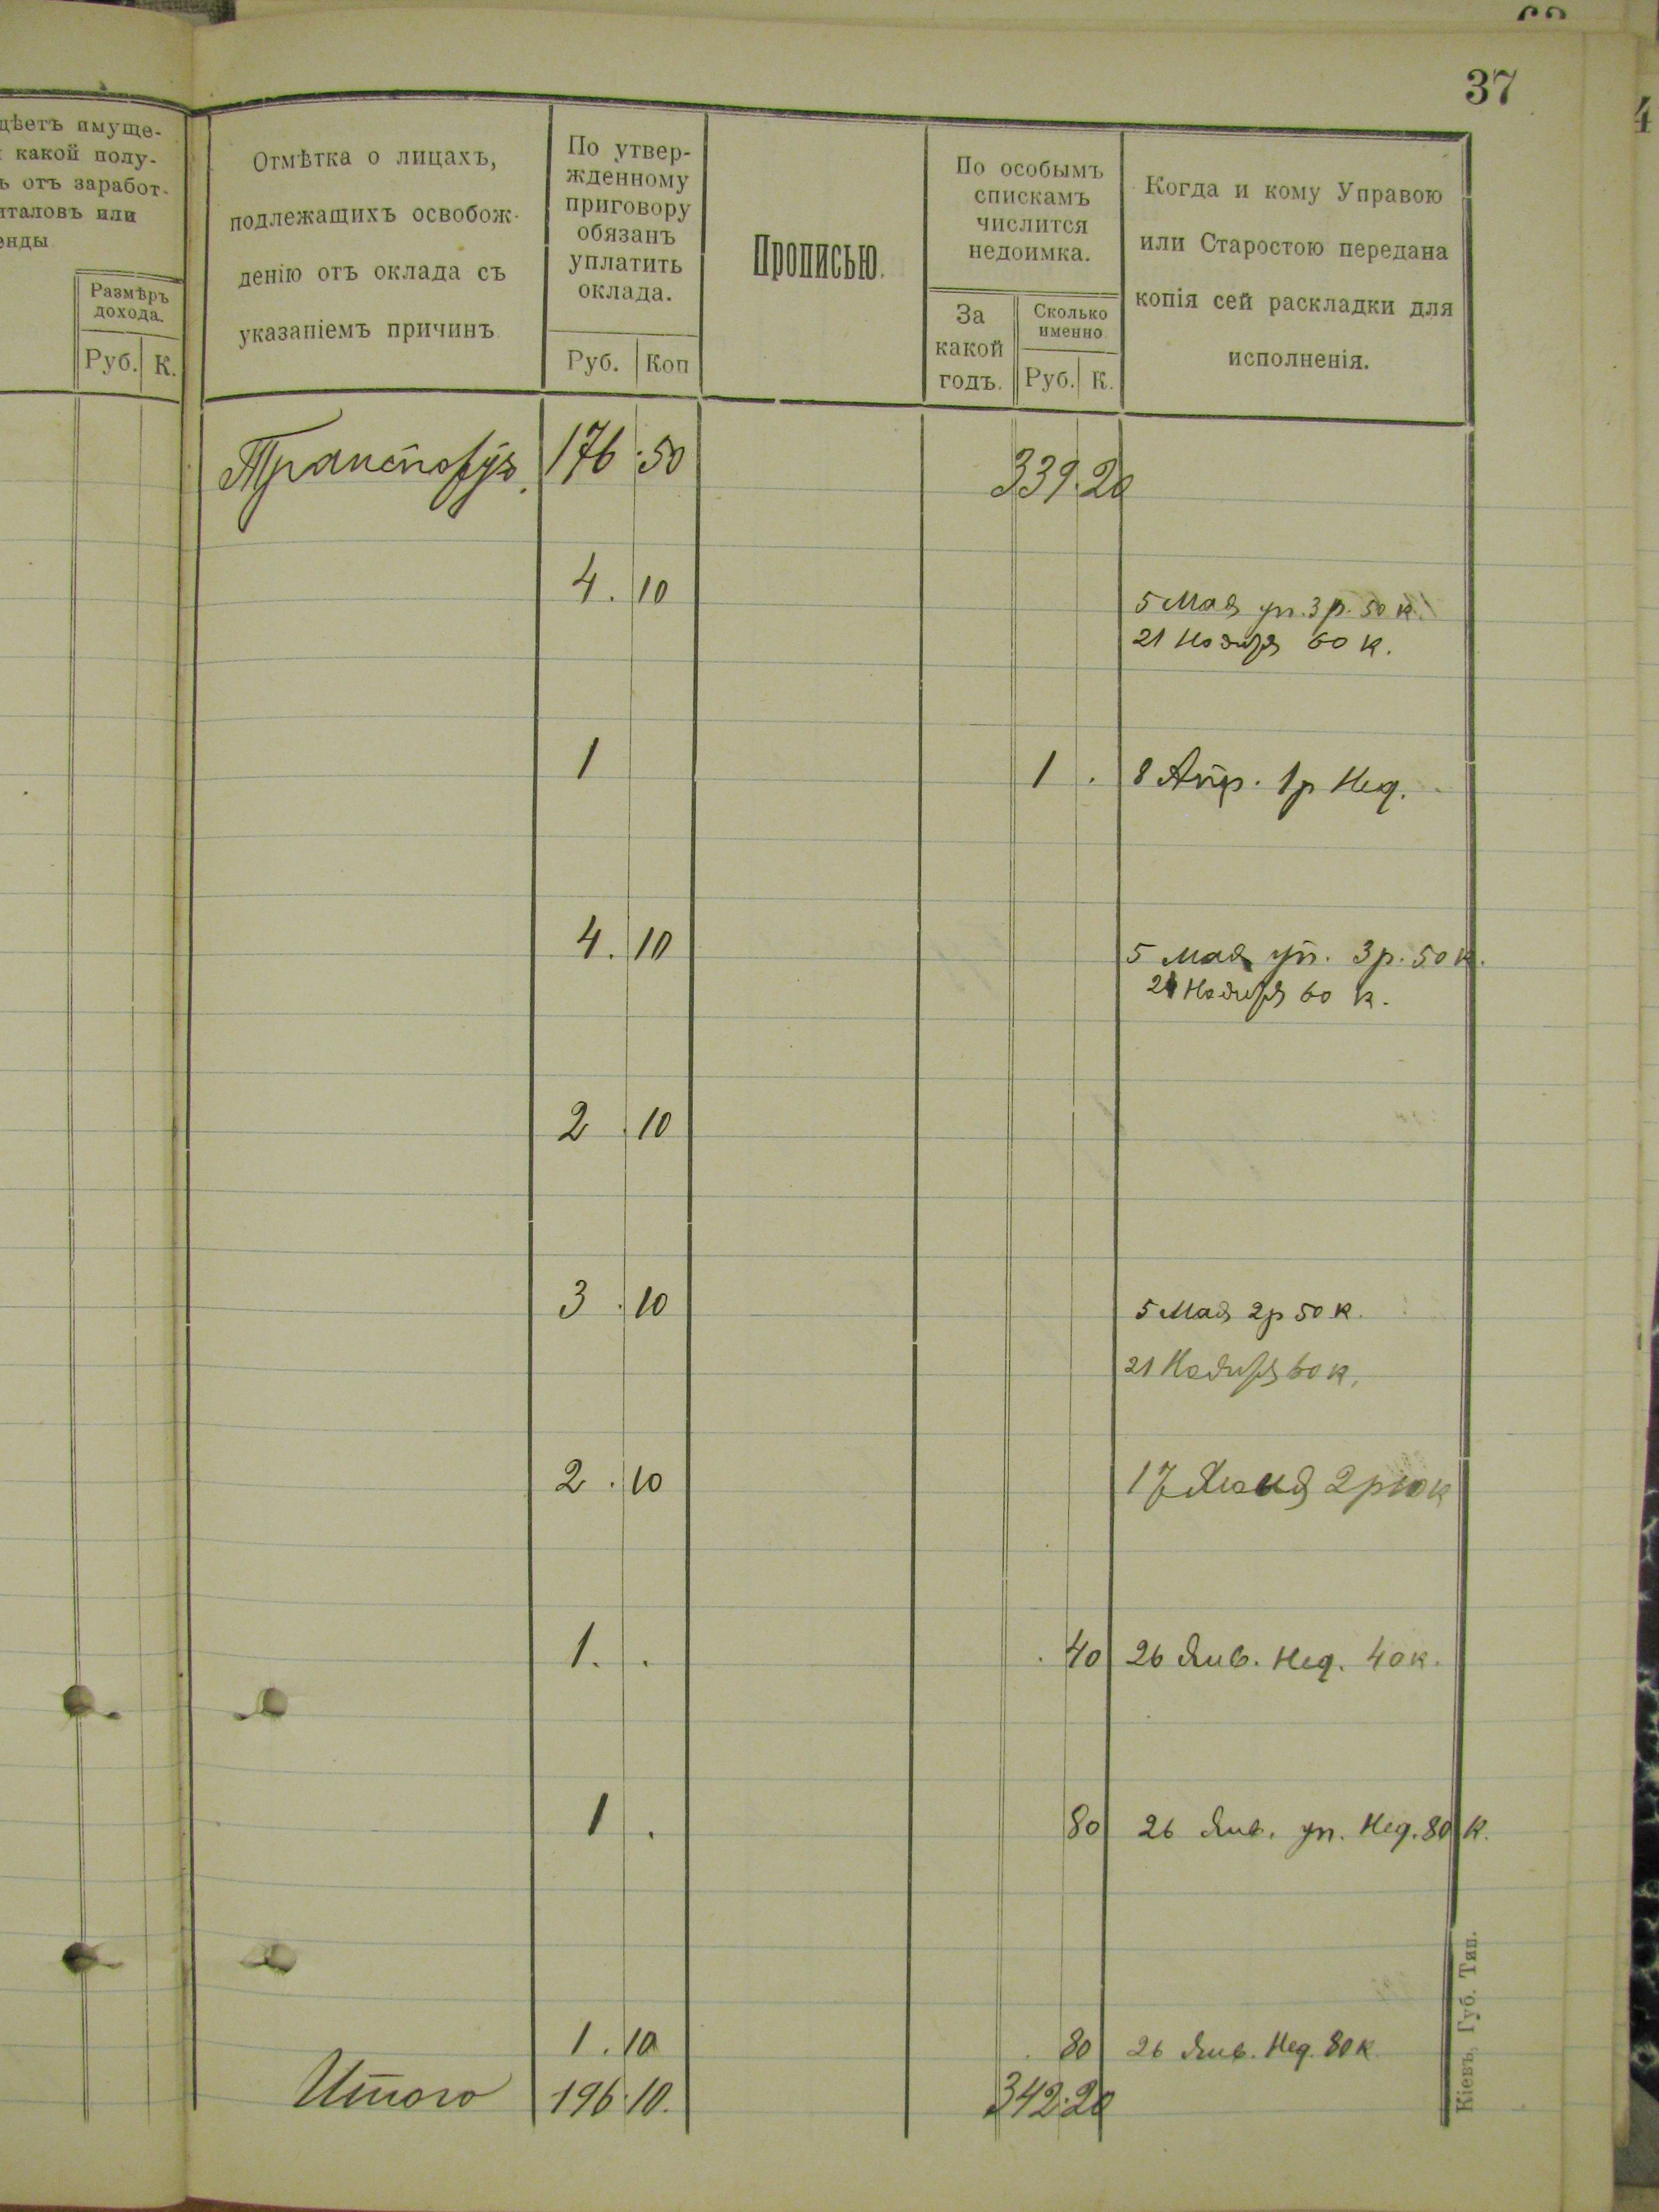 37
дѣетъ имуще-
какой полу-
ь отъ заработ-
италовъ или
енды
Размѣръ
дохода.
Руб. К.
Отмѣтка о лицахъ,
подлежащихъ освобож-
денію отъ оклада съ
указаніемъ причинъ
По утвер-
жденному
приговору
обязанъ
уплатить
оклада.
Руб. Коп
Прописью.
По особымъ
спискамъ
числится
недоимка.
За
какой
годъ.
Сколько
именно
Руб. К.
Когда и кому Управою
или Старостою передана
копія сей раскладки для
исполненія.
Транспортъ 176.50 339.20
4.10 5 Мая уп. 3 р. 50 к.
21 Ноября 60 к.
1 1 . 8 Апр. 1р Нед.
4.10 5 Мая уп. 3 р. 50 к.
21 Ноября 60 к.
2.10
3.10 5 Мая 2р 50 к.
21 Ноября 60 к.
2.10 17 Июня 2р 10 к
1. . . 40 26 Янв. Нед. 40 к.
1 . 80 26 Янв. уп. Нед. 80 к.
1.10 . 80 26 Янв. Нед. 80 к
Итого 196.10. 342.20
Кіевъ, Губ. Тип.